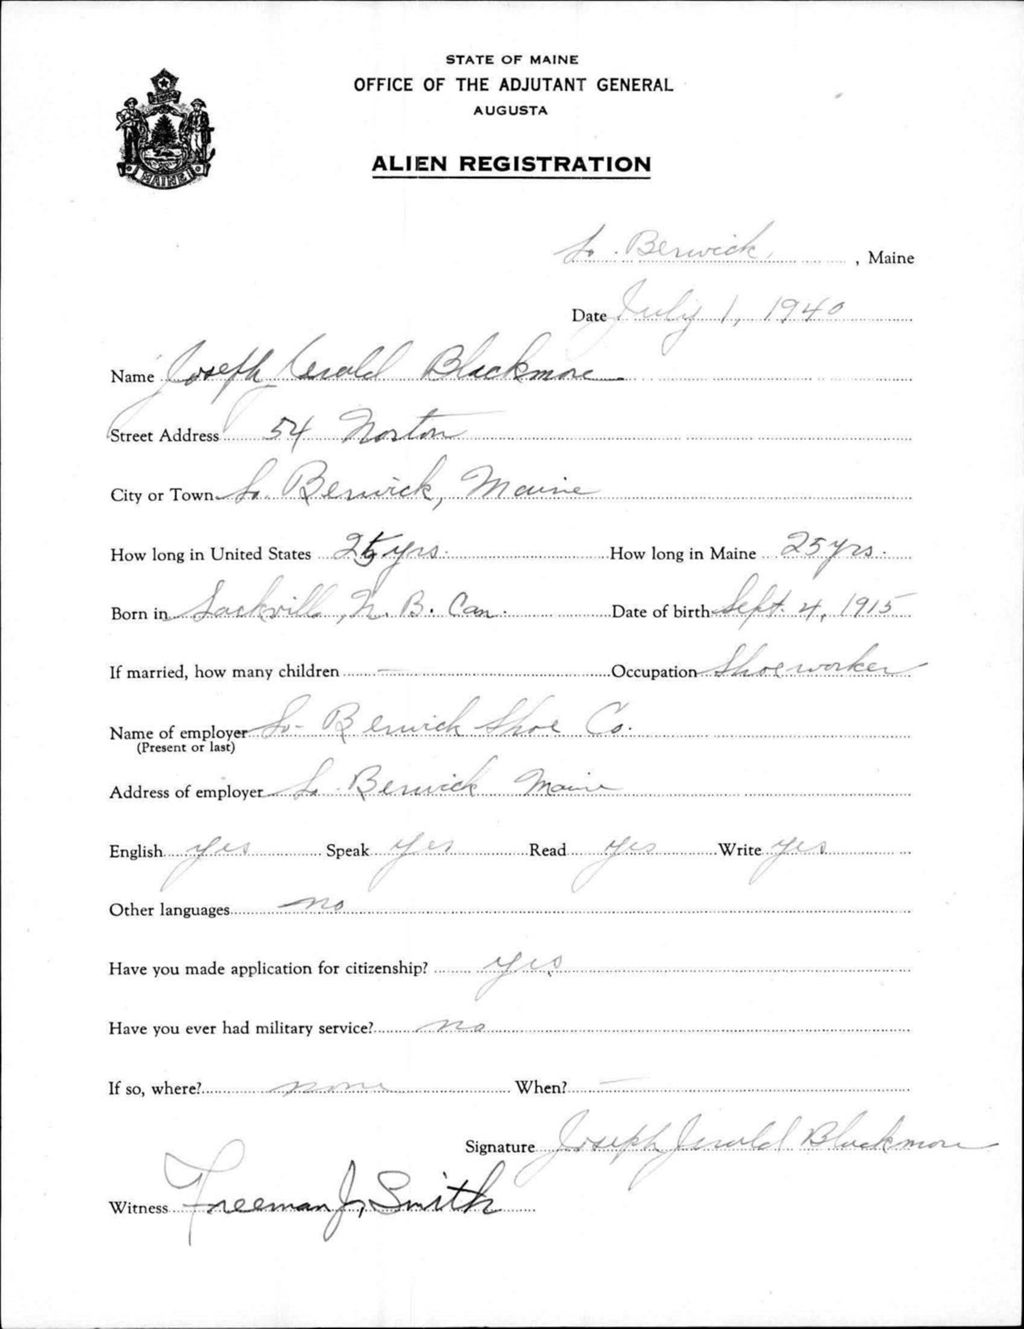 STATE OF MAINE
OFFICE OF THE ADJUTANT GENERAL
AUGUSTA
MAINE
ALIEN REGISTRATION
So. Berwick, , Maine
Date July 1, 1940
Name Joseph Jerald Blackmore
Street Address 54 Norton
City or Town So. Berwick, Maine
How long in United States 25 yrs. How long in Maine 25 yrs.
Born in Sackvill, N. B. Can. Date of birth Sept. 4, 1915
If married, how many children — Occupation Shoeworker
Name of employer So- Berwick Shoe Co.
(Present or last)
Address of employer So. Berwick Maine
English yes Speak yes Read yes Write yes
Other languages no
Have you made application for citizenship? yes
Have you ever had military service? no
If so, where? none When? —
Signature Joseph Jerald Blackmore
Witness Freeman J. Smith